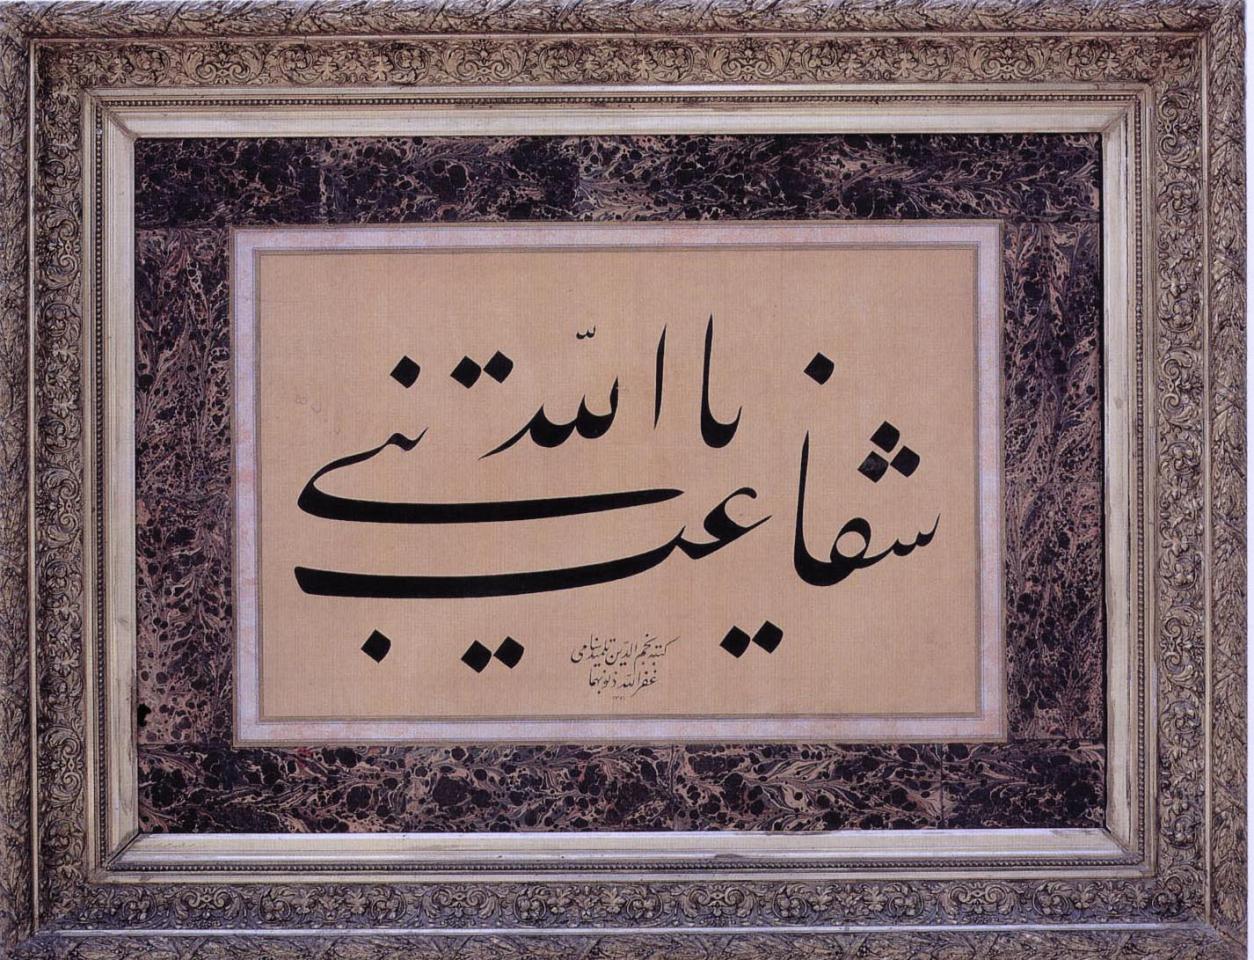 شفاعت يا نبي الله
كتبه نجم الدين تلميذ سامي
غفر الله ذنوبهما